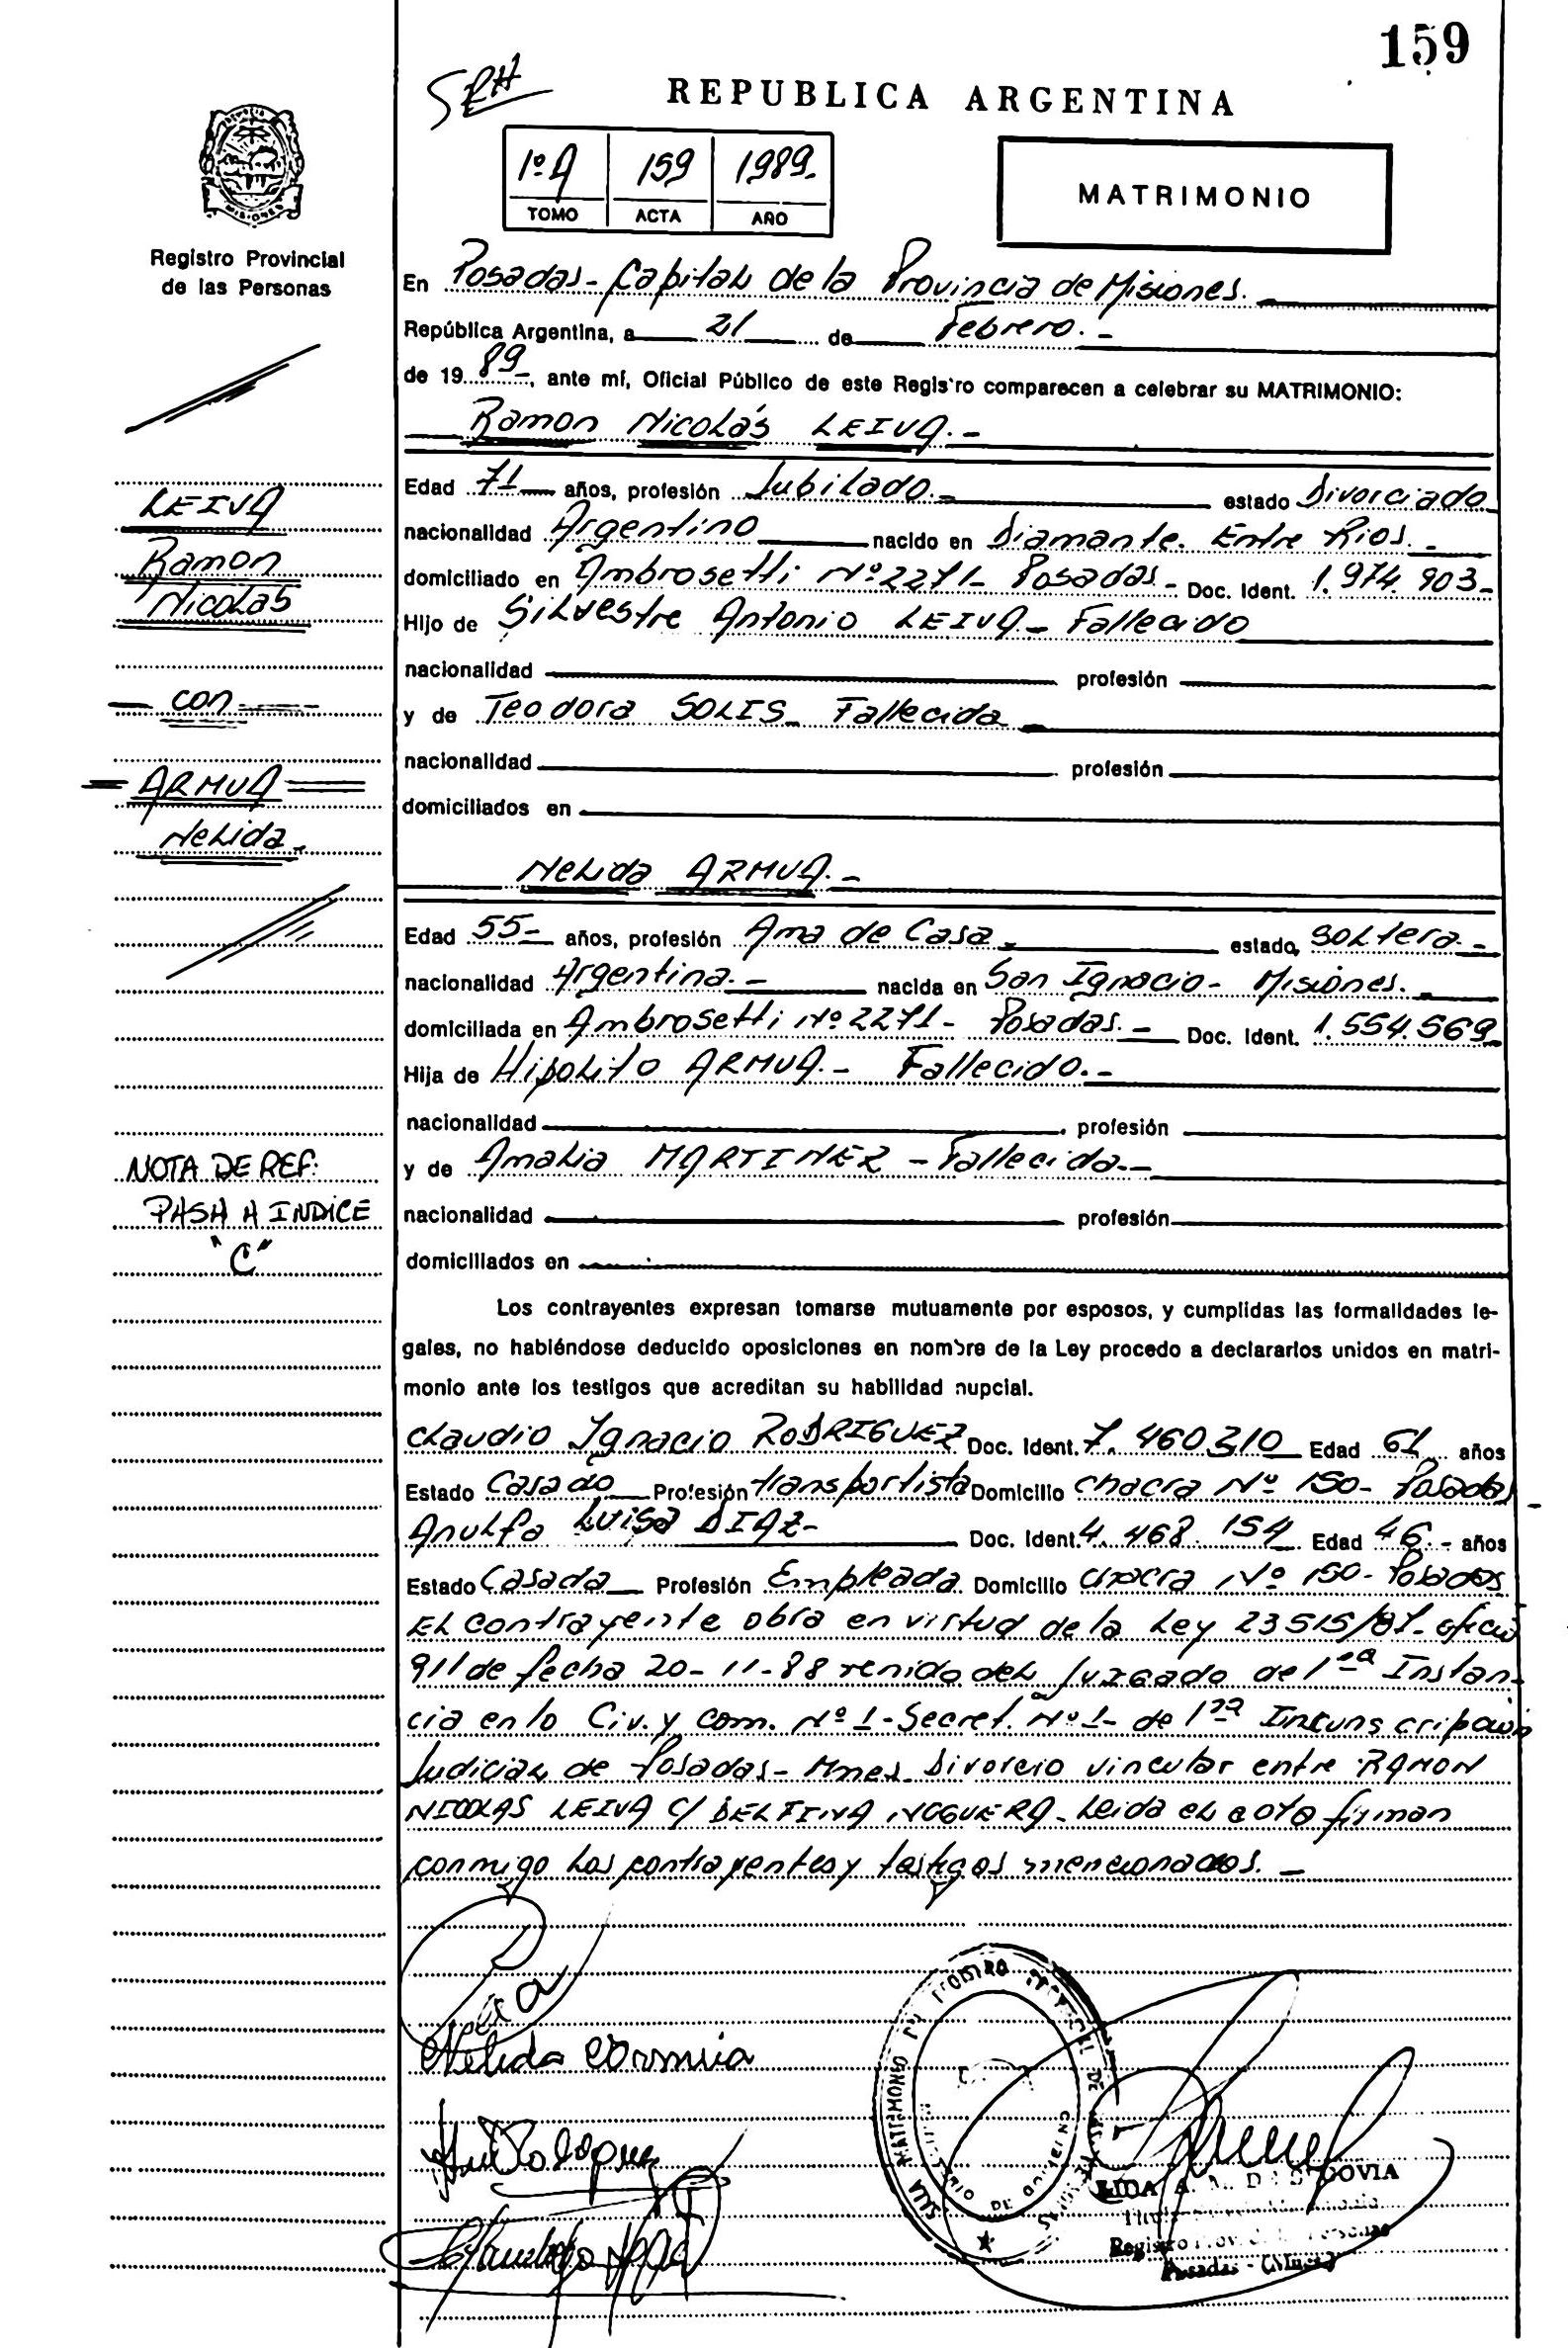 159
SRH
REPUBLICA ARGENTINA
1º A 159 1989.-
TOMO ACTA AÑO
MATRIMONIO
MISIONES
Registro Provincial
de las Personas
En Posadas - Capital de la Provincia de Misiones.
República Argentina, a 21 de Febrero.-
de 1989-, ante mí, Oficial Público de este Registro comparecen a celebrar su MATRIMONIO:
Ramon Nicolás LEIVA.-
Edad 71 años, profesión Jubilado.- estado Divorciado
nacionalidad Argentino nacido en Diamante. Entre Rios.-
domiciliado en Ambrosetti Nº 2271- Posadas.- Doc. Ident. 1.974.903-
Hijo de Silvestre Antonio LEIVA - Fallecido
nacionalidad profesión
y de Teodora SOLIS - Fallecida
nacionalidad profesión
domiciliados en
LEIVA
Ramon
Nicolas
con
ARMUA
Nelida.
Nelida ARMUA.-
Edad 55- años, profesión Ama de Casa.- estado, soltera.-
nacionalidad Argentina.- nacida en San Ignacio - Misiones.-
domiciliada en Ambrosetti Nº 2271- Posadas.- Doc. Ident. 1.554.569
Hija de Hipolito ARMUA.- Fallecido.-
nacionalidad profesión
y de Amalia MARTINEZ - Fallecida.-
nacionalidad profesión
domiciliados en
NOTA DE REF:
PASA A INDICE
"C"
Los contrayentes expresan tomarse mutuamente por esposos, y cumplidas las formalidades le-
gales, no habiéndose deducido oposiciones en nombre de la Ley procedo a declararlos unidos en matri-
monio ante los testigos que acreditan su habilidad nupcial.
Claudio Ignacio RODRIGUEZ Doc. Ident. 7.460.310 Edad 61 años
Estado Casado Profesión transportista Domicilio chacra Nº 150- Posadas-
Anulfa Luisa DIAZ- Doc. Ident. 4.468.154 Edad 46.- años
Estado Casada Profesión Empleada Domicilio chacra Nº 150- Posadas
El contrayente obra en virtud de la Ley 23515/87- oficio
911 de fecha 20-11-88 venido del Juzgado de 1ra Instan-
cia en lo Civ. y com. Nº 1 - Secret. Nº 1- de 1ra Incunscripcion
Judicial de Posadas - Mnes. Divorcio vincular entre RAMON
NICOLAS LEIVA C/ DELFINA NOGUERA - Leida el acta firman
conmigo los contrayentes y testigos mencionados.-
Nelida Armua
LIDA A. DE SEGOVIA
Posadas - (Mnes.)